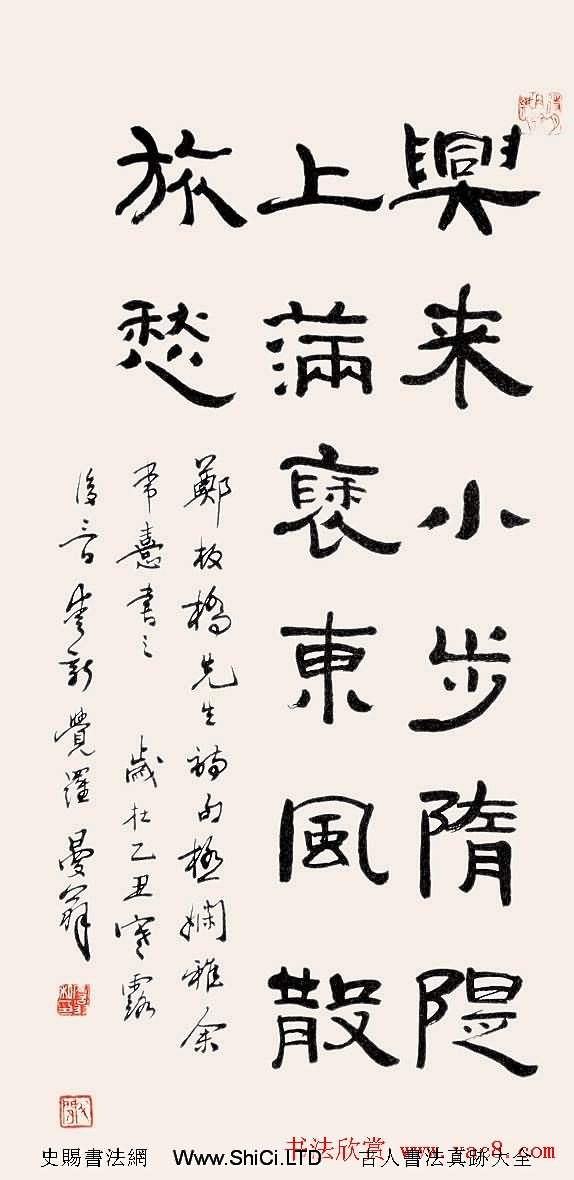 興来小步隋隄
上滿褏東風散
旅愁
鄭板橋先生詩句極嫻雅余
常憙書之 歲在乙丑寒露
後三日愛新覺羅曼翁
书法欣赏 www.yac8.com
史賜書法網 Www.ShiCi.LTD 古人書法真跡大全